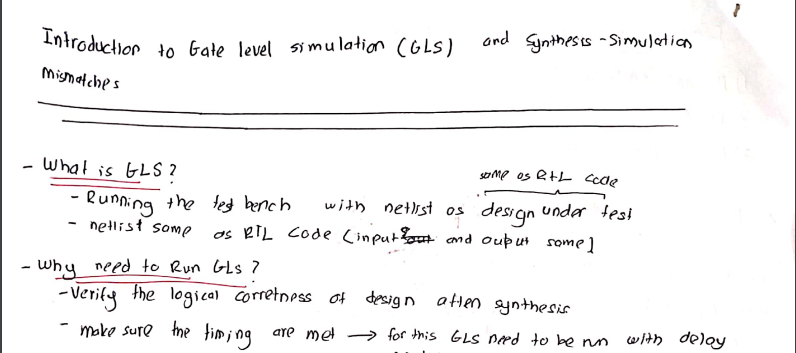 Introduction to Gate level simulation (GLS) and Synthesis - Simulation
Mismatches
- What is GLS ?
same as RTL code
- Running the test bench with netlist as design under test
- netlist same as RTL code (input & and ouput same]
- Why need to Run GLS ?
- Verify the logical corretness of design atten synthesis
- make sure the timing are met → for this GLS need to be run with delay